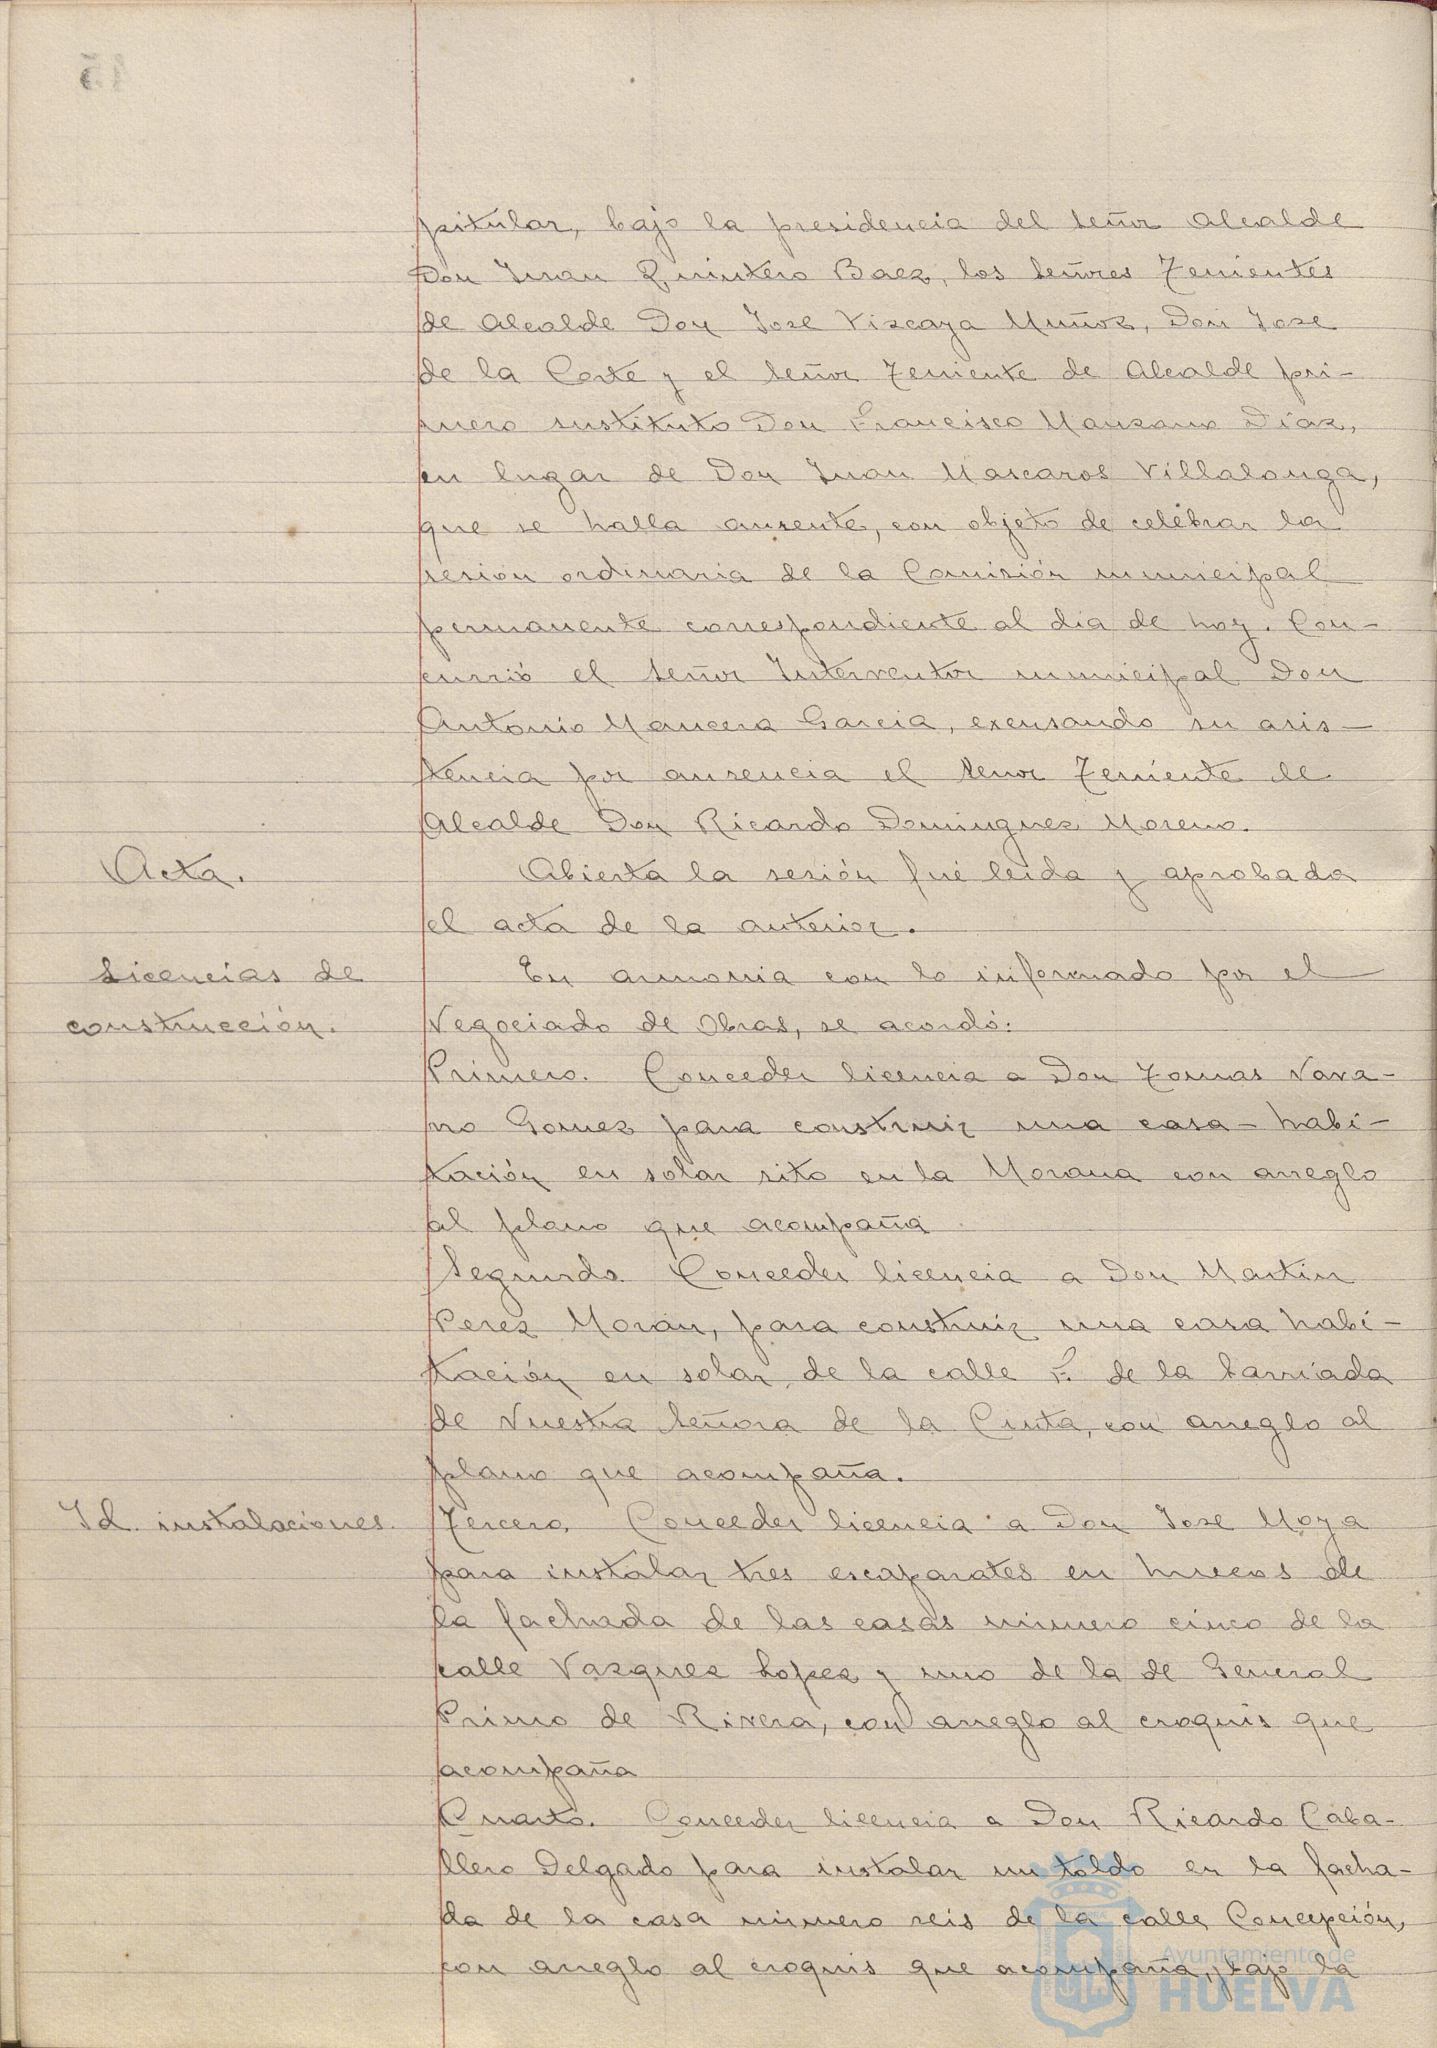 pitular, bajo la presidencia del señor Alcalde
Don Juan Quintero Baez, los señores Tenientes
de Alcalde Don Jose Viscaya Muñoz, Don Jose
de la Corte y el señor Teniente de Alcalde pri-
mero sustituto Don Francisco Manzano Díaz,
en lugar de Don Juan Mascaros Villalonga,
que se halla ausente, con objeto de celebrar la
sesion ordinaria de la Comisión municipal
permanente correspondiente al dia de hoy. Con-
currió el señor Interventor municipal Don
Antonio Mancera Garcia, excusando su asis-
tencia por ausencia el señor Teniente de
Alcalde Don Ricardo Dominguez Moreno.
Acta.
Abierta la sesión fué leida y aprobada
el acta de la anterior.
Licencias de
construcción.
En armonia con lo informado por el
Negociado de Obras, se acordó:
Primero. Conceder licencia a Don Tomas Nava-
rro Gomez para construir una casa-habi-
tación en solar sito en la Morana con arreglo
al plano que acompaña
Segundo. Conceder licencia a Don Martin
Perez Moran, para construir una casa habi-
tación en solar de la calle F. de la barriada
de Nuestra Señora de la Cinta, con arreglo al
plano que acompaña.
Id. instalaciones.
Tercero. Conceder licencia a Don Jose Moya
para instalar tres escaparates en huecos de
la fachada de las casas número cinco de la
calle Vazquez Lopez y uno de la de General
Primo de Rivera, con arreglo al croquis que
acompaña
Cuarto. Conceder licencia a Don Ricardo Caba-
llero Delgado para instalar un toldo en la facha-
da de la casa número seis de la calle Concepción,
con arreglo al croquis que acompaña, bajo la
Ayuntamiento de
HUELVA